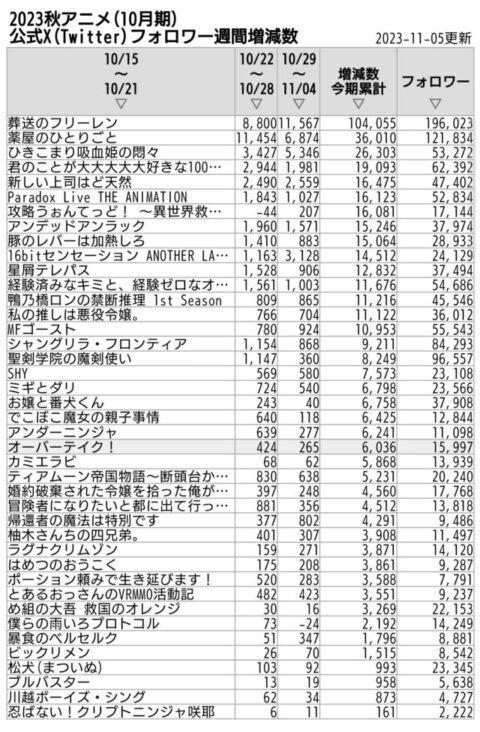 2023秋アニメ(10月期)
公式X(Twitter)フォロワー週間増減数 2023-11-05更新
10/15 〜 10/21 ▽ 10/22 〜 10/28 ▽ 10/29 〜 11/04 ▽ 増減数 今期累計 ▽ フォロワー ▽
葬送のフリーレン 8,800 11,567 104,055 196,023
薬屋のひとりごと 11,454 6,874 36,010 121,834
ひきこまり吸血姫の悶々 3,427 5,346 26,303 53,272
君のことが大大大大大好きな100… 2,944 1,981 19,093 62,392
新しい上司はど天然 2,490 2,559 16,475 47,402
Paradox Live THE ANIMATION 1,843 1,027 16,123 52,834
攻略うぉんてっど! 〜異世界救… -44 207 16,081 17,144
アンデッドアンラック 1,960 1,571 15,246 37,974
豚のレバーは加熱しろ 1,410 883 15,064 28,933
16bitセンセーション ANOTHER LA… 1,163 3,128 14,512 24,129
星屑テレパス 1,528 906 12,832 37,494
経験済みなキミと、経験ゼロなオ… 1,561 1,003 11,676 54,686
鴨乃橋ロンの禁断推理 1st Season 809 865 11,216 45,546
私の推しは悪役令嬢。 766 704 11,122 36,012
MFゴースト 780 924 10,953 55,543
シャングリラ・フロンティア 1,154 868 9,211 84,293
聖剣学院の魔剣使い 1,147 360 8,249 96,557
SHY 569 580 7,573 23,108
ミギとダリ 724 540 6,798 23,566
お嬢と番犬くん 243 40 6,758 37,908
でこぼこ魔女の親子事情 640 118 6,425 12,844
アンダーニンジャ 639 277 6,241 11,098
オーバーテイク! 424 265 6,036 15,997
カミエラビ 68 62 5,868 13,939
ティアムーン帝国物語〜断頭台か… 830 638 5,231 20,240
婚約破棄された令嬢を拾った俺が… 397 248 4,560 17,768
冒険者になりたいと都に出て行っ… 881 356 4,512 13,818
帰還者の魔法は特別です 377 802 4,291 9,486
柚木さんちの四兄弟。 401 307 3,908 11,497
ラグナクリムゾン 159 271 3,871 14,120
はめつのおうこく 175 208 3,861 9,287
ポーション頼みで生き延びます! 520 283 3,588 7,791
とあるおっさんのVRMMO活動記 482 423 3,551 9,237
め組の大吾 救国のオレンジ 30 16 3,269 22,153
僕らの雨いろプロトコル 73 -24 2,192 14,249
暴食のベルセルク 51 347 1,796 8,881
ビックリメン 26 70 1,515 8,542
松犬(まついぬ) 103 92 993 23,345
ブルバスター 13 19 958 5,638
川越ボーイズ・シング 62 34 873 4,727
忍ばない!クリプトニンジャ咲耶 6 11 161 2,222